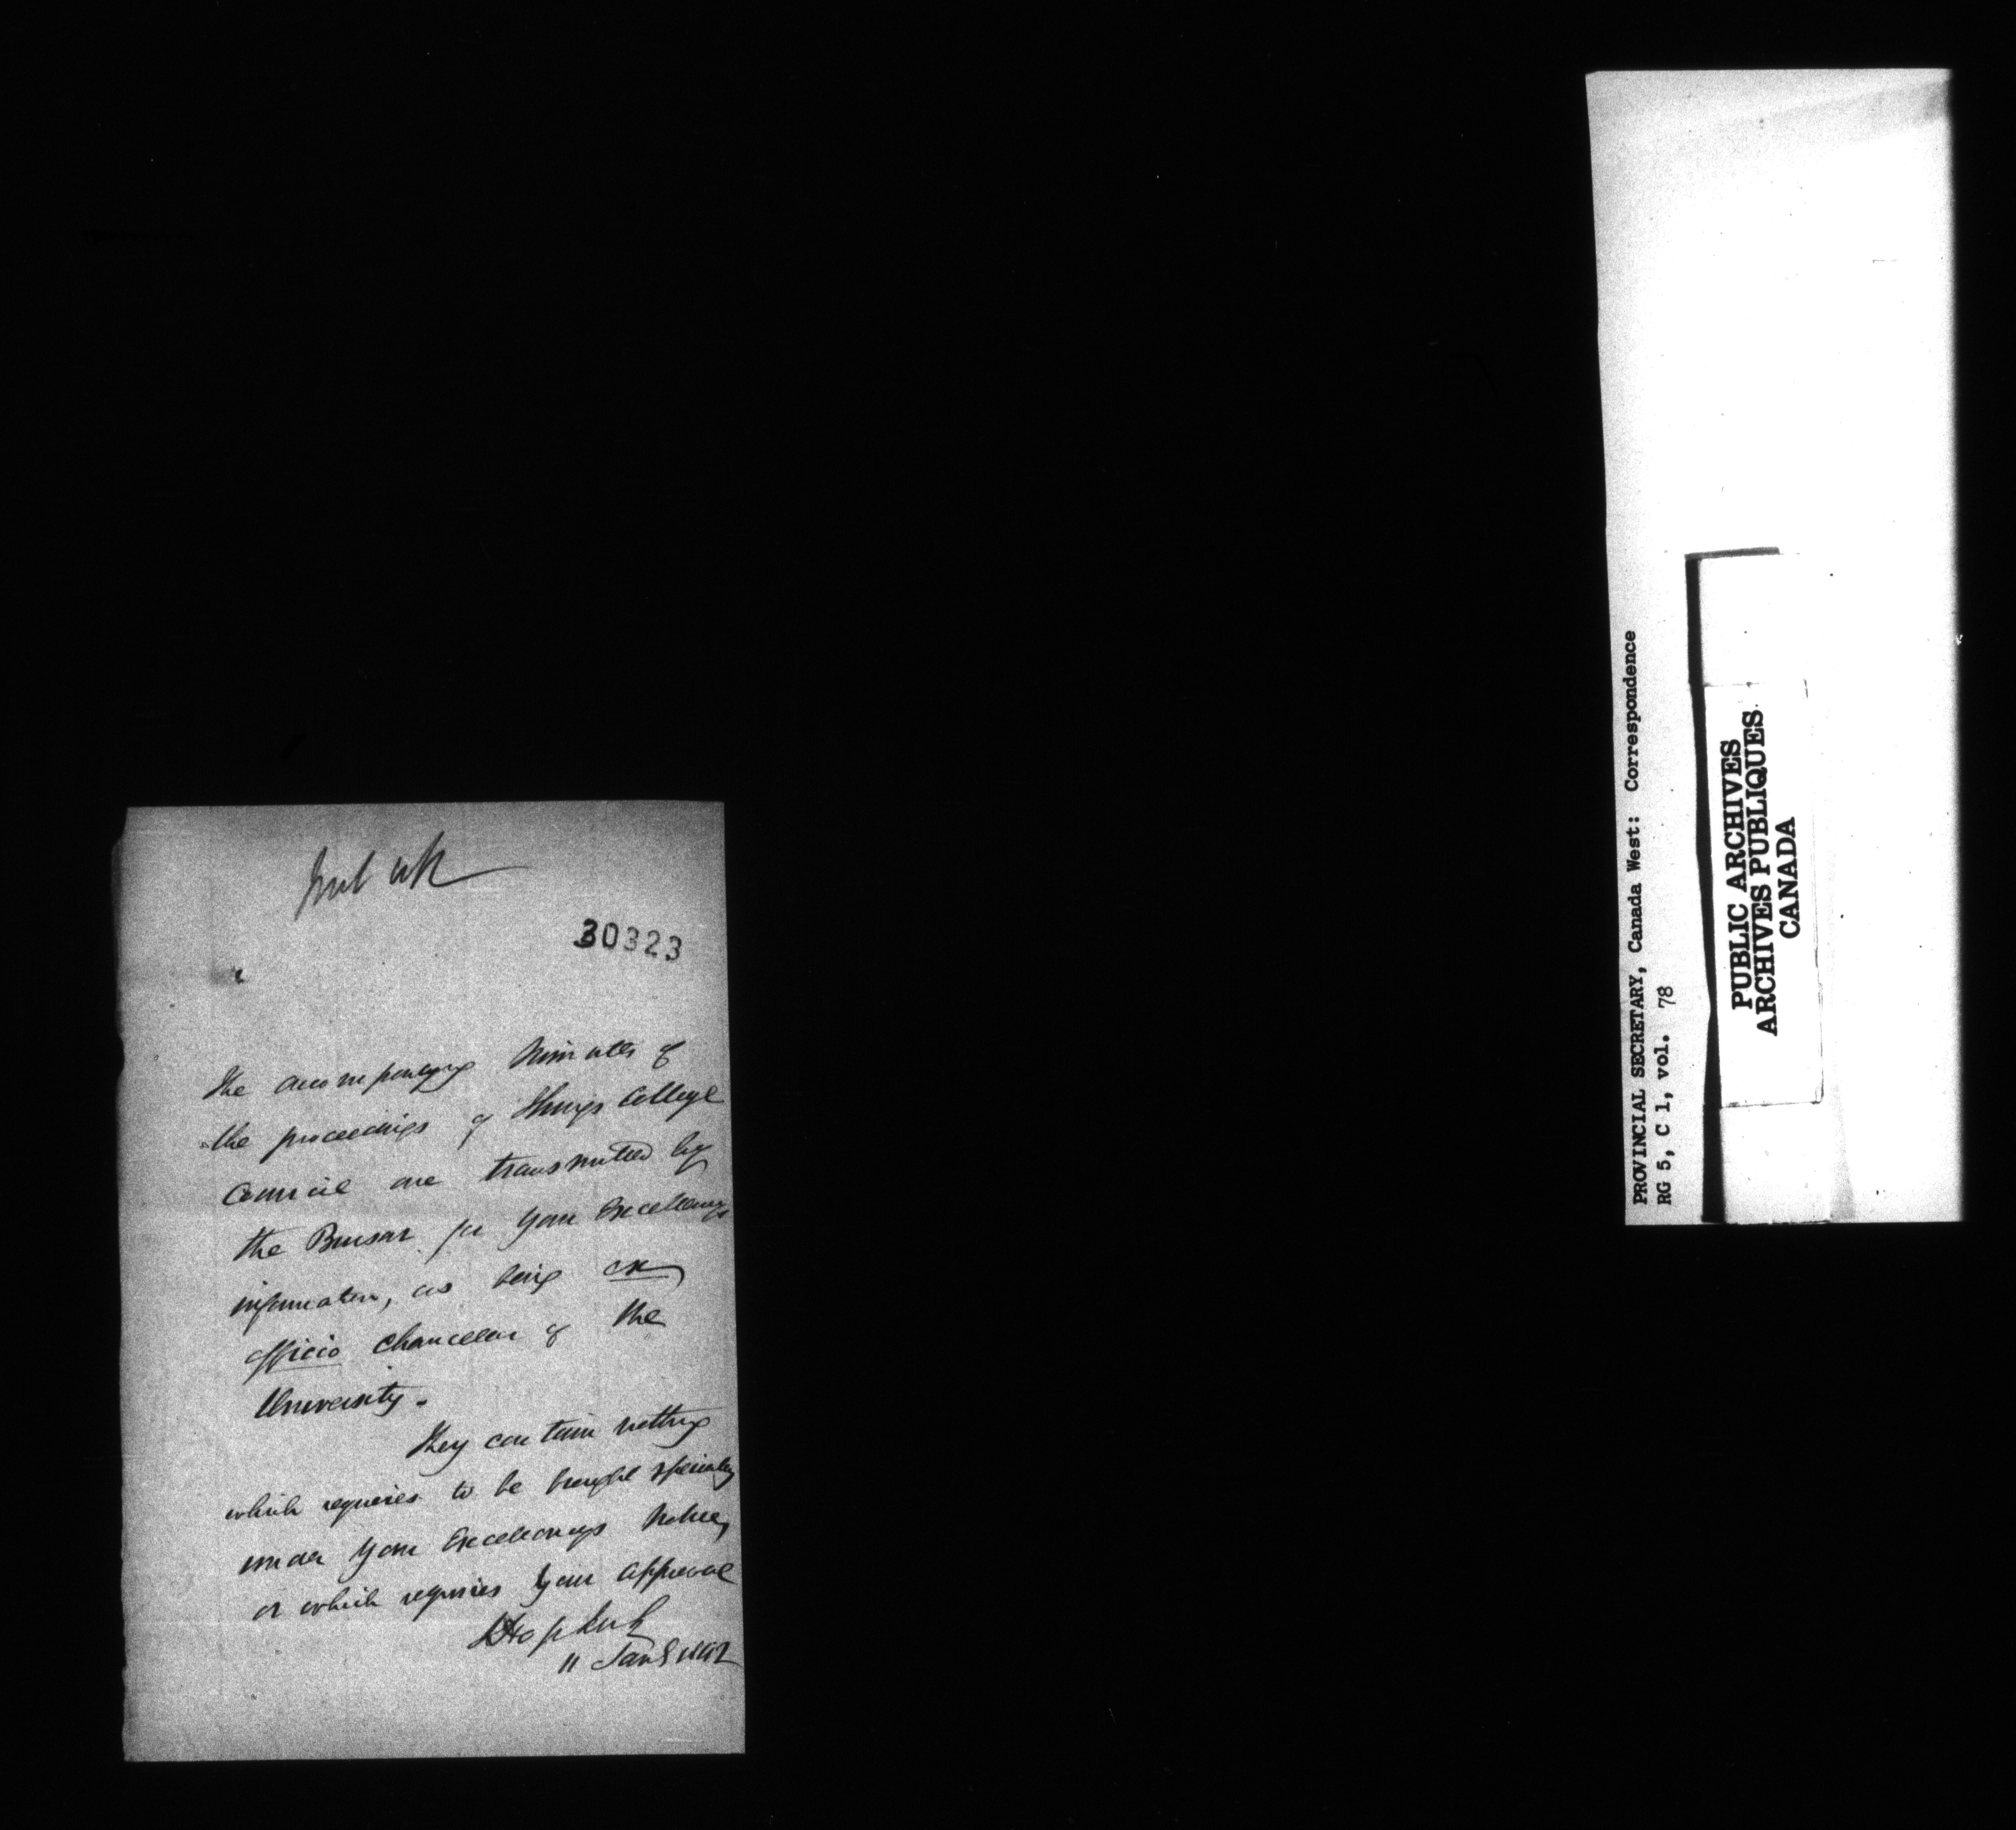 30323
The accompanying Minutes of
the proceedings of Kings College
Council are transmitted by
the Bursar for Your Excellencys
information, as being ex
officio Chancellor of the
University.
They contain nothing
which requires to be brought specially
under Your Excellencys Notice,
or which requires Your approval
11 Jany 1842
PROVINCIAL SECRETARY, Canada West: Correspondence
RG 5, C 1, vol. 78
PUBLIC ARCHIVES
ARCHIVES PUBLIQUES
CANADA